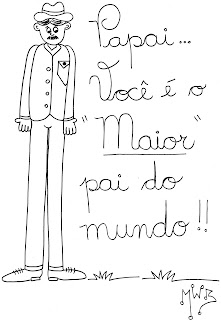 Papai...
Você é o
"Maior"
pai do
mundo!!
MWB